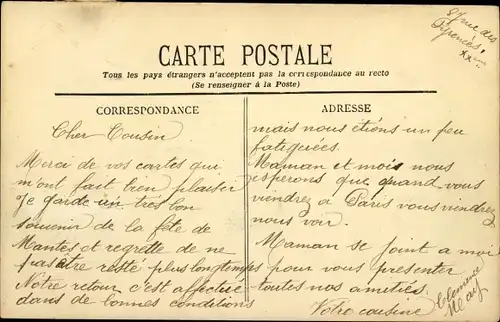 87 rue des
Pyrénées,
XXème
CARTE POSTALE
Tous les pays étrangers n'acceptent pas la correspondance au recto
(Se renseigner à la Poste)
CORRESPONDANCE
Cher Cousin
Merci de vos cartes qui
m'ont fait bien plaisir
Je garde un très bon
souvenir de la fête de
Mantes et regrette de ne
pas être resté plus longtemps
Notre retour c'est affectué
dans de bonnes conditions
ADRESSE
mais nous étions un peu
fatiguées.
Maman et mois nous
esperons que quand vous
viendrez à Paris vous viendrez
nous voir.
Maman se joint a moi
pour vous presenter
toutes nos amitiés.
Votre cousine
Clemence